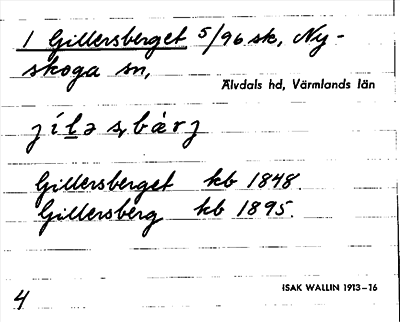 1 Gillersberget 5/96 sk, Ny-
skoga sn,
Älvdals hd, Värmlands län
Gillersberget kb 1848.
Gillersberg kb 1895.
4
ISAK WALLIN 1913–16